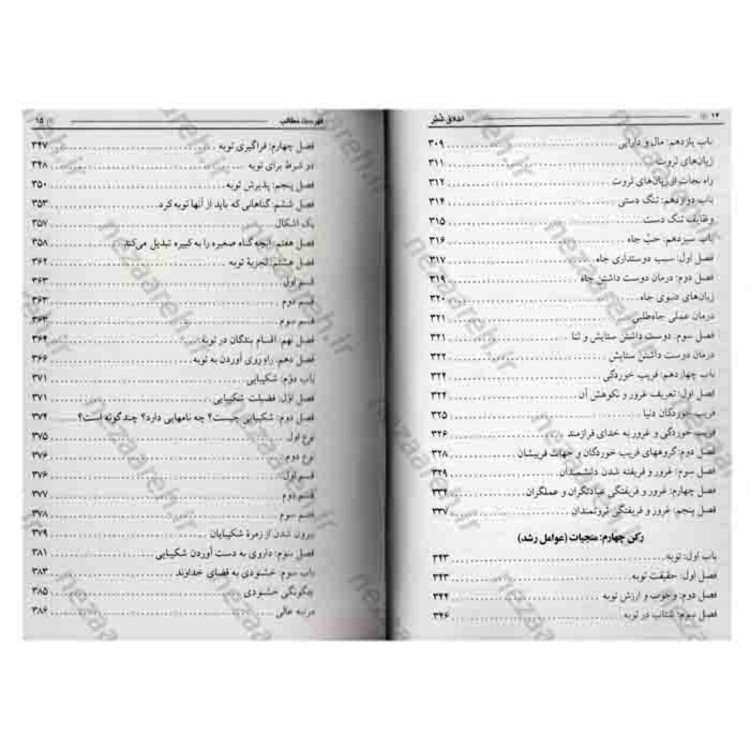 ۱۴ اخلاق شبّر
باب یازدهم: مال و دارایی ۳۰۹
زیان‌های ثروت ۳۱۱
راه نجات از زیان‌های ثروت ۳۱۲
باب دوازدهم: تنگ دستی ۳۱۴
وظایف تنگ دست ۳۱۵
باب سیزدهم: حبّ جاه ۳۱۶
فصل اول: سبب دوستداری جاه ۳۱۷
فصل دوم: درمان دوست داشتن جاه ۳۱۹
زیان‌های دنیوی جاه ۳۲۰
درمان عملی جاه‌طلبی ۳۲۱
فصل سوم: دوست داشتن ستایش و ثنا ۳۲۱
درمان دوست داشتن ستایش ۳۲۲
باب چهاردهم: فریب خوردگی ۳۲۴
فصل اول: تعریف غرور و نکوهش آن ۳۲۴
فریب خوردگان دنیا ۳۲۵
فریب خوردگی و غرور به خدای فرازمند ۳۲۶
فصل دوم: گروههای فریب خوردگان و جهات فریبشان ۳۲۸
فصل سوم: غرور و فریفته شدن دانشمندان ۳۲۹
فصل چهارم: غرور و فریفتگی عبادتگران و عملگران ۳۳۴
فصل پنجم: غرور و فریفتگی ثروتمندان ۳۳۷
رکن چهارم: منجیات (عوامل رشد)
باب اول: توبه ۳۴۳
فصل اول: حقیقت توبه ۳۴۳
فصل دوم: وجوب و ارزش توبه ۳۴۴
فصل سوم: شتاب در توبه ۳۴۶
فهرست مطالب ۱۵
فصل چهارم: فراگیری توبه ۳۴۷
دو شرط برای توبه ۳۴۸
فصل پنجم: پذیرش توبه ۳۵۰
فصل ششم: گناهانی که باید از آنها توبه کرد ۳۵۳
یک اشکال ۳۵۷
فصل هفتم: آنچه گناه صغیره را به کبیره تبدیل می‌کند ۳۵۸
فصل هشتم: تجزیهٔ توبه ۳۶۲
قسم اول ۳۶۳
قسم دوم ۳۶۳
قسم سوم ۳۶۳
فصل نهم: اقسام بندگان در توبه ۳۶۴
فصل دهم: راه روی آوردن به توبه ۳۶۶
باب دوّم: شکیبایی ۳۷۱
فصل اوّل: فضیلت شکیبایی ۳۷۱
فصل دوم: شکیبایی چیست؟ چه نامهایی دارد؟ چند گونه است؟ ۳۷۴
نوع اول ۳۷۵
نوع دوم ۳۷۶
قسم اول ۳۷۶
قسم دوم ۳۷۷
قسم سوم ۳۷۸
بیرون شدن از زمرهٔ شکیبایان ۳۷۹
فصل سوم: داروی به دست آوردن شکیبایی ۳۸۱
باب سوم: خشنودی به قضای خداوند ۳۸۳
چگونگی خشنودی ۳۸۵
مرتبه عالی ۳۸۶
nezaareh.ir